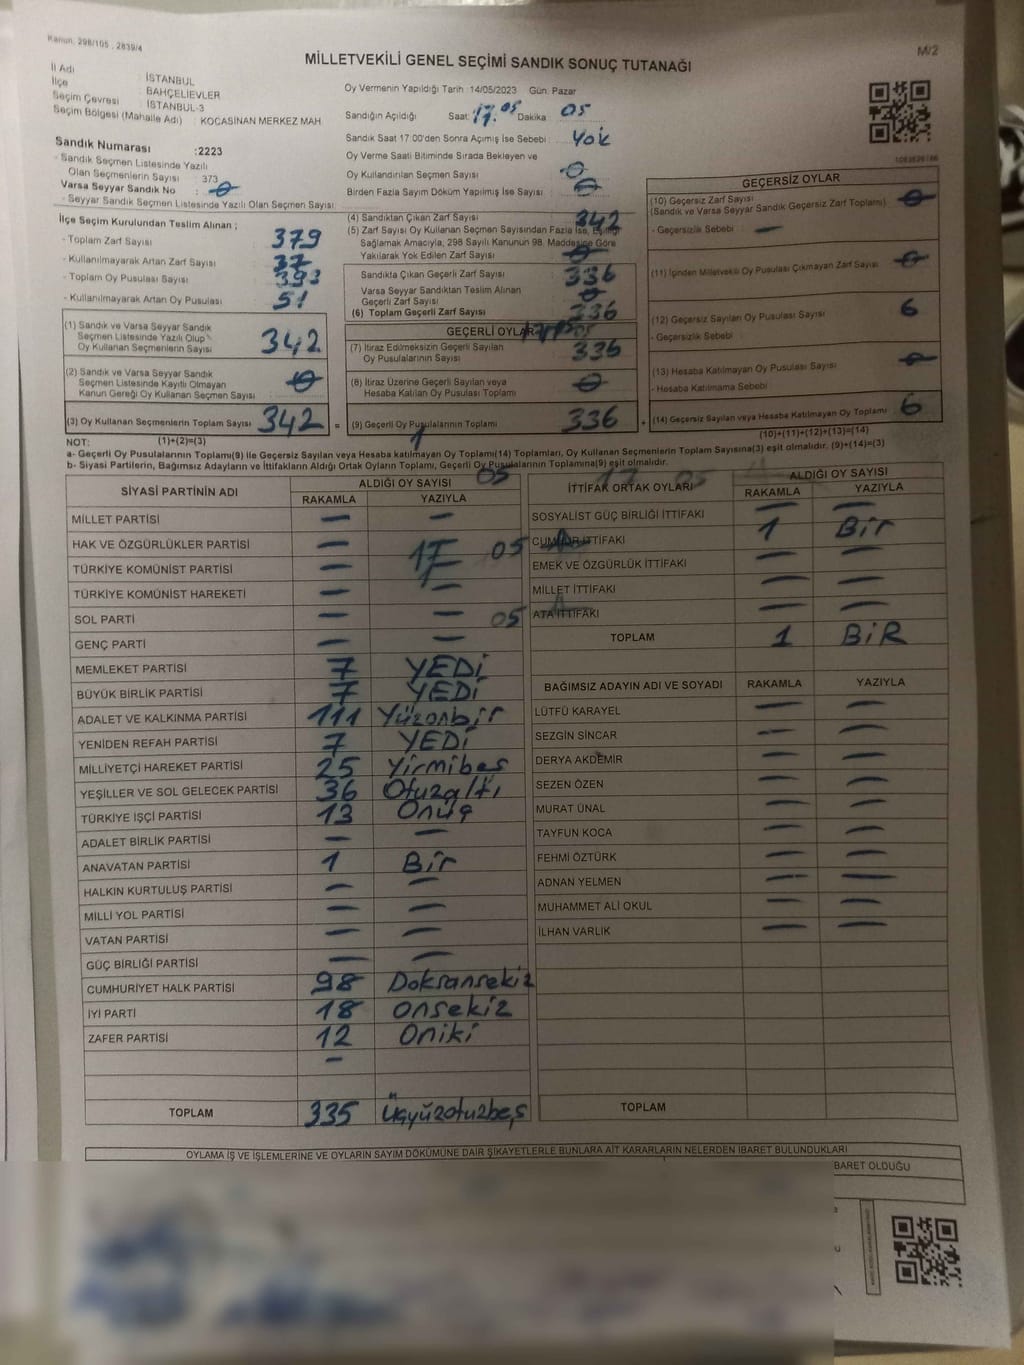 Kanun. 298/105 , 2839/4
M/2
MİLLETVEKİLİ GENEL SEÇİMİ SANDIK SONUÇ TUTANAĞI
İl Adı : İSTANBUL
İlçe : BAHÇELİEVLER
Seçim Çevresi : İSTANBUL-3
Seçim Bölgesi (Mahalle Adı) : KOCASİNAN MERKEZ MAH.
Sandık Numarası :2223
- Sandık Seçmen Listesinde Yazılı
Olan Seçmenlerin Sayısı : 373
Varsa Seyyar Sandık No : 0
- Seyyar Sandık Seçmen Listesinde Yazılı Olan Seçmen Sayısı:
Oy Vermenin Yapıldığı Tarih :14/05/2023 Gün: Pazar
Sandığın Açıldığı Saat: 17.05 Dakika 05
Sandık Saat 17:00'den Sonra Açımış İse Sebebi : YOK
Oy Verme Saati Bitiminde Sırada Bekleyen ve
Oy Kullandırılan Seçmen Sayısı : 0
Birden Fazla Sayım Döküm Yapılmış İse Sayısı : 0
İlçe Seçim Kurulundan Teslim Alınan ;
- Toplam Zarf Sayısı : 379
- Kullanılmayarak Artan Zarf Sayısı : 37
- Toplam Oy Pusulası Sayısı : 393
- Kullanılmayarak Artan Oy Pusulası : 51
(1) Sandık ve Varsa Seyyar Sandık
Seçmen Listesinde Yazılı Olup
Oy Kullanan Seçmenlerin Sayısı : 342
(2) Sandık ve Varsa Seyyar Sandık
Seçmen Listesinde Kayıtlı Olmayan
Kanun Gereği Oy Kullanan Seçmen Sayısı : 0
(3) Oy Kullanan Seçmenlerin Toplam Sayısı : 342 =
(4) Sandıktan Çıkan Zarf Sayısı : 342
(5) Zarf Sayısı Oy Kullanan Seçmen Sayısından Fazla İse, Eşitliği
Sağlamak Amacıyla, 298 Sayılı Kanunun 98. Maddesine Göre
Yakılarak Yok Edilen Zarf Sayısı : 0
Sandıkta Çıkan Geçerli Zarf Sayısı : 336
Varsa Seyyar Sandıktan Teslim Alınan
Geçerli Zarf Sayısı : 0
(6) Toplam Geçerli Zarf Sayısı : 336
GEÇERLİ OYLAR
(7) İtiraz Edilmeksizin Geçerli Sayılan
Oy Pusulalarının Sayısı : 336
(8) İtiraz Üzerine Geçerli Sayılan veya
Hesaba Katılan Oy Pusulası Toplamı : 0
(9) Geçerli Oy Pusulalarının Toplamı : 336 +
GEÇERSİZ OYLAR
(10) Geçersiz Zarf Sayısı : 0
(Sandık ve Varsa Seyyar Sandık Geçersiz Zarf Toplamı)
- Geçersizlik Sebebi : —
(11) İçinden Milletvekili Oy Pusulası Çıkmayan Zarf Sayısı : 0
(12) Geçersiz Sayılan Oy Pusulası Sayısı : 6
- Geçersizlik Sebebi
(13) Hesaba Katılmayan Oy Pusulası Sayısı : 0
- Hesaba Katılmama Sebebi
(14) Geçersiz Sayılan veya Hesaba Katılmayan Oy Toplamı : 6
NOT: (1)+(2)=(3)
(10)+(11)+(12)+(13)=(14)
a- Geçerli Oy Pusulalarının Toplamı(9) ile Geçersiz Sayılan veya Hesaba katılmayan Oy Toplamı(14) Toplamları, Oy Kullanan Seçmenlerin Toplam Sayısına(3) eşit olmalıdır. (9)+(14)=(3)
b- Siyasi Partilerin, Bağımsız Adayların ve İttifakların Aldığı Ortak Oyların Toplamı, Geçerli Oy Pusulalarının Toplamına(9) eşit olmalıdır.
SİYASİ PARTİNİN ADI ALDIĞI OY SAYISI
RAKAMLA YAZIYLA
MİLLET PARTİSİ — —
HAK VE ÖZGÜRLÜKLER PARTİSİ —
TÜRKİYE KOMÜNİST PARTİSİ — —
TÜRKİYE KOMÜNİST HAREKETİ — —
SOL PARTİ — —
GENÇ PARTİ — —
MEMLEKET PARTİSİ 7 YEDİ
BÜYÜK BİRLİK PARTİSİ 7 YEDİ
ADALET VE KALKINMA PARTİSİ 111 Yüzonbir
YENİDEN REFAH PARTİSİ 7 YEDİ
MİLLİYETÇİ HAREKET PARTİSİ 25 Yirmibeş
YEŞİLLER VE SOL GELECEK PARTİSİ 36 Otuzaltı
TÜRKİYE İŞÇİ PARTİSİ 13 Onüç
ADALET BİRLİK PARTİSİ — —
ANAVATAN PARTİSİ 1 Bir
HALKIN KURTULUŞ PARTİSİ — —
MİLLİ YOL PARTİSİ — —
VATAN PARTİSİ — —
GÜÇ BİRLİĞİ PARTİSİ — —
CUMHURİYET HALK PARTİSİ 98 Doksansekiz
İYİ PARTİ 18 onsekiz
ZAFER PARTİSİ 12 Oniki
—
TOPLAM 335 Üçyüzotuzbeş
İTTİFAK ORTAK OYLARI ALDIĞI OY SAYISI
RAKAMLA YAZIYLA
SOSYALİST GÜÇ BİRLİĞİ İTTİFAKI — —
CUMHUR İTTİFAKI 1 Bir
EMEK VE ÖZGÜRLÜK İTTİFAKI — —
MİLLET İTTİFAKI — —
ATA İTTİFAKI — —
TOPLAM 1 BİR
BAĞIMSIZ ADAYIN ADI VE SOYADI RAKAMLA YAZIYLA
LÜTFÜ KARAYEL — —
SEZGİN SİNCAR — —
DERYA AKDEMİR — —
SEZEN ÖZEN — —
MURAT ÜNAL — —
TAYFUN KOCA — —
FEHMİ ÖZTÜRK — —
ADNAN YELMEN — —
MUHAMMET ALİ OKUL — —
İLHAN VARLIK — —
TOPLAM
OYLAMA İŞ VE İŞLEMLERİNE VE OYLARIN SAYIM DÖKÜMÜNE DAİR ŞİKAYETLERLE BUNLARA AİT KARARLARIN NELERDEN İBARET BULUNDUKLARI
BARET OLDUĞU